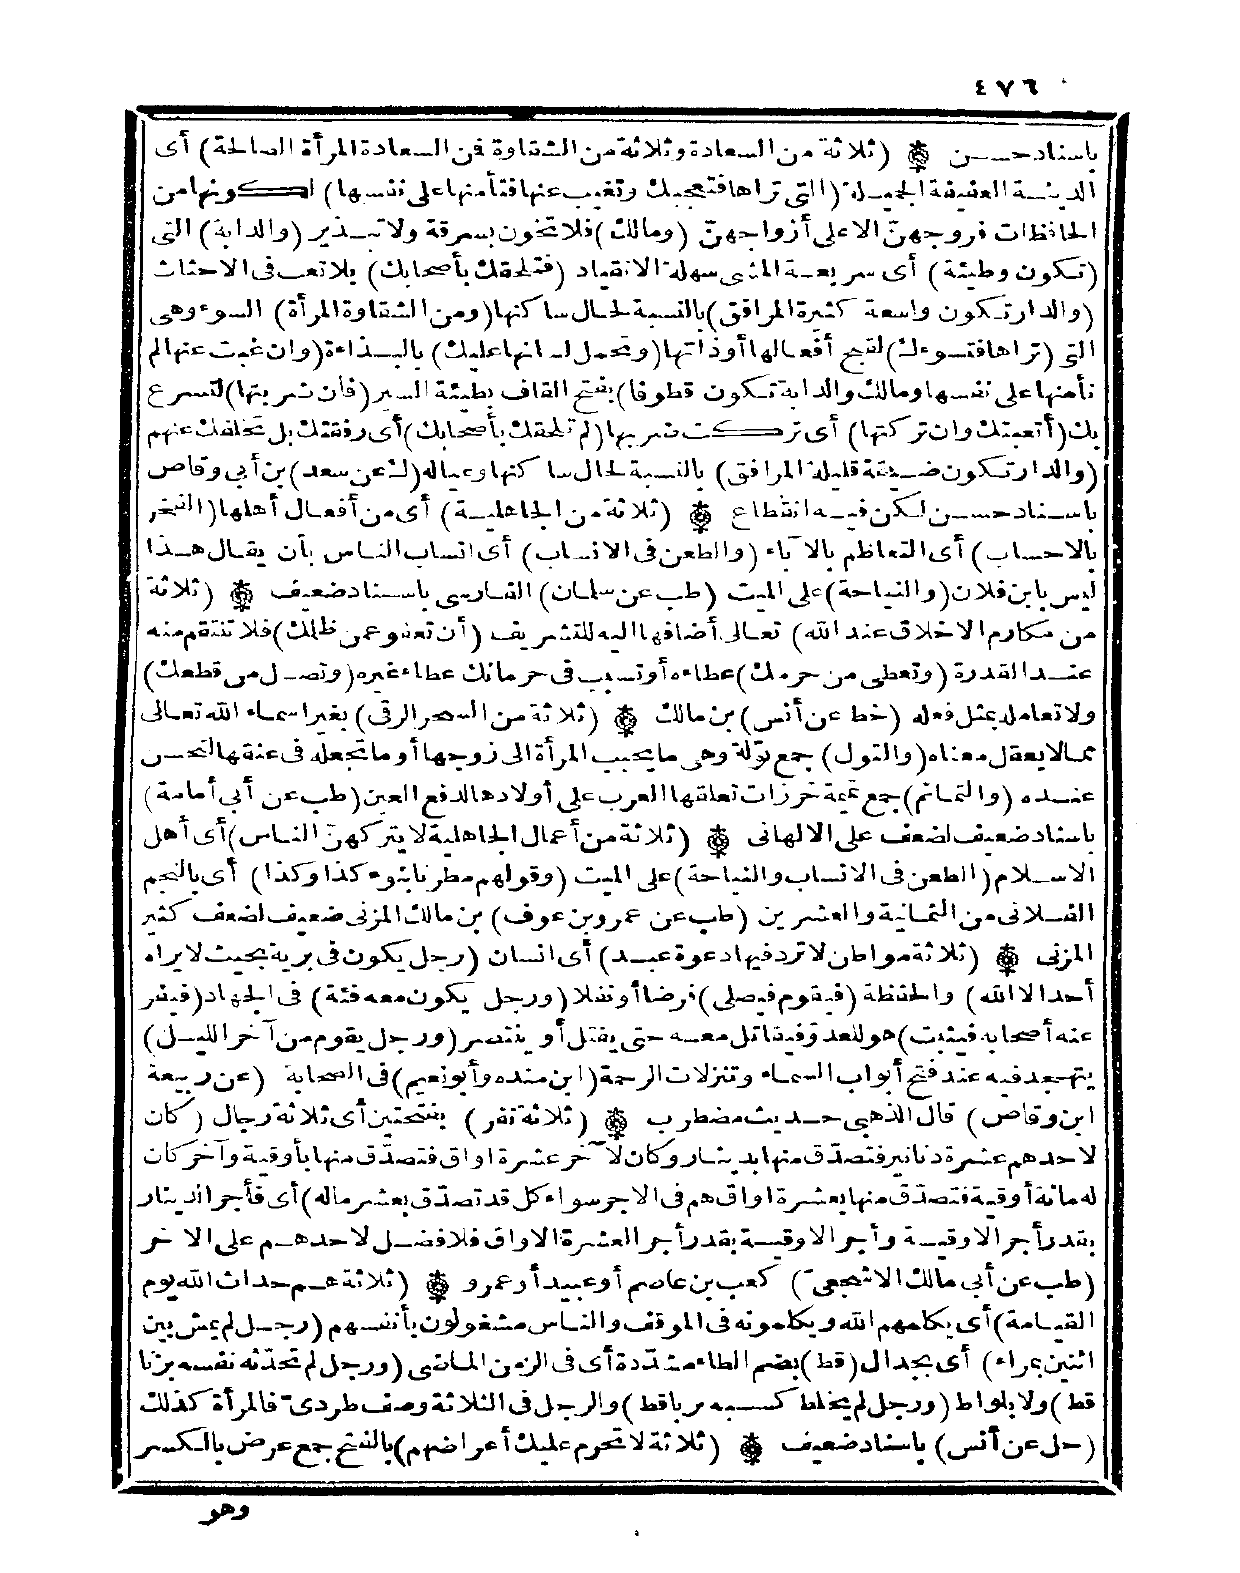 ٤٧٦
باسناد حسن ۞ (ثلاثة من السعادة وثلاثة من الشقاوة فمن السعادة المرأة الصالحة) أى
الدينة العفيفة الجميلة (التى تراها فتعجبك وتغيب عنها فتأمنها على نفسها) لكونها من
الحافظات فروجهن الا على أزواجهن (ومالك) فلا تخون بسرقة ولا تبذير (والدابة) التى
(تكون وطيئة) أى سريعة المشى سهلة الانقياد (فتلحقك بأصحابك) بلا تعب فى الاحثاث
(والدار تكون واسعة كثيرة المرافق) بالنسبة لحال ساكنها (ومن الشقاوة المرأة) السوء وهى
التى (تراها فتسوءك) لقبح أفعالها أو ذاتها (وتحمل لسانها عليك) بالبذاءة (وان غبت عنها لم
تأمنها على نفسها ومالك والدابة تكون قطوفا) بفتح القاف بطيئة السير (فان ضربتها) لتسرع
بك (أتعبتك وان تركتها) أى تركت ضربها (لم تلحقك بأصحابك) أى رفقتك بل تخلفك عنهم
(والدار تكون ضيقة قليلة المرافق) بالنسبة لحال ساكنها وعياله (ك عن سعد) بن أبى وقاص
باسناد حسن لكن فيه انقطاع ۞ (ثلاثة من الجاهلية) أى من أفعال أهلها (الفخر
بالاحساب) أى التعاظم بالآباء (والطعن فى الانساب) أى انساب الناس بأن يقال هذا
ليس بابن فلان (والنياحة) على الميت (طب عن سلمان) الفارسى باسناد ضعيف ۞ (ثلاثة
من مكارم الاخلاق عند الله) تعالى أضافها اليه للتشريف (أن تعفو عمن ظلمك) فلا تنتقم منه
عند القدرة (وتعطى من حرمك) عطاءه أو تسبب فى حرمانك عطاء غيره (وتصل من قطعك)
ولا تعامله بمثل فعله (خط عن أنس) بن مالك ۞ (ثلاثة من السحر الرقى) بغير اسماء الله تعالى
مما لا يعقل معناه (والتول) جمع تولة وهى ما يحبب المرأة الى زوجها أو ما تجعله فى عنقها لتحسن
عنده (والتمائم) جمع تميمة خرزات تعلقها العرب على أولادها لدفع العين (طب عن أبى أمامة)
باسناد ضعيف لضعف على الالهانى ۞ (ثلاثة من أعمال الجاهلية لا يتركهن الناس) أى أهل
الاسلام (الطعن فى الانساب والنياحة) على الميت (وقولهم مطرنا بنوء كذا وكذا) أى بالنجم
الفلانى من الثمانية والعشرين (طب عن عمرو بن عوف) بن مالك المزنى ضعيف لضعف كثير
المزنى ۞ (ثلاثة مواطن لا ترد فيها دعوة عبد) أى انسان (رجل يكون فى برية بحيث لا يراه
أحد الا الله) والحفظة (فيقوم فيصلى) فرضا أو نفلا (ورجل يكون معه فئة) فى الجهاد (فيفر
عنه أصحابه فيثبت) هو للعدو فيقاتل معه حتى يقتل أو ينتصر (ورجل يقوم من آخر الليل)
يتهجد فيه عند فتح أبواب السماء وتنزلات الرحمة (ابن منده وأبو نعيم) فى الصحابة (عن ربيعة
ابن وقاص) قال الذهبى حديث مضطرب ۞ (ثلاثة نفر) بفتحتين أى ثلاثة رجال (كان
لاحدهم عشرة دنانير فتصدّق منها بدينار وكان لآخر عشرة اواق فتصدّق منها بأوقية وآخر كان
له مائة أوقية فتصدّق منها بعشرة اواق هم فى الاجر سواء كل قد تصدّق بعشر ماله) أى فأجر الدينار
بقدر أجر الاوقية وأجر الاوقية بقدر أجر العشرة الاواق فلا فضل لاحدهم على الآخر
(طب عن أبى مالك الاشجعى) كعب بن عاصم أو عبيد أو عمرو ۞ (ثلاثة هم حداث الله يوم
القيامة) أى يكلمهم الله ويكلمونه فى الموقف والناس مشغولون بأنفسهم (رجل لم يمش بين
اثنين بمراء) أى بجدال (قط) بضم الطاء مشدّدة أى فى الزمن الماضى (ورجل لم تحدّثه نفسه بزنا
قط) ولا بلواط (ورجل لم يخلط كسبه بربا قط) والرجل فى الثلاثة وصف طردى فالمرأة كذلك
(حل عن أنس) باسناد ضعيف ۞ (ثلاثة لا تحرم عليك أعراضهم) بالفتح جمع عرض بالكسر
وهو